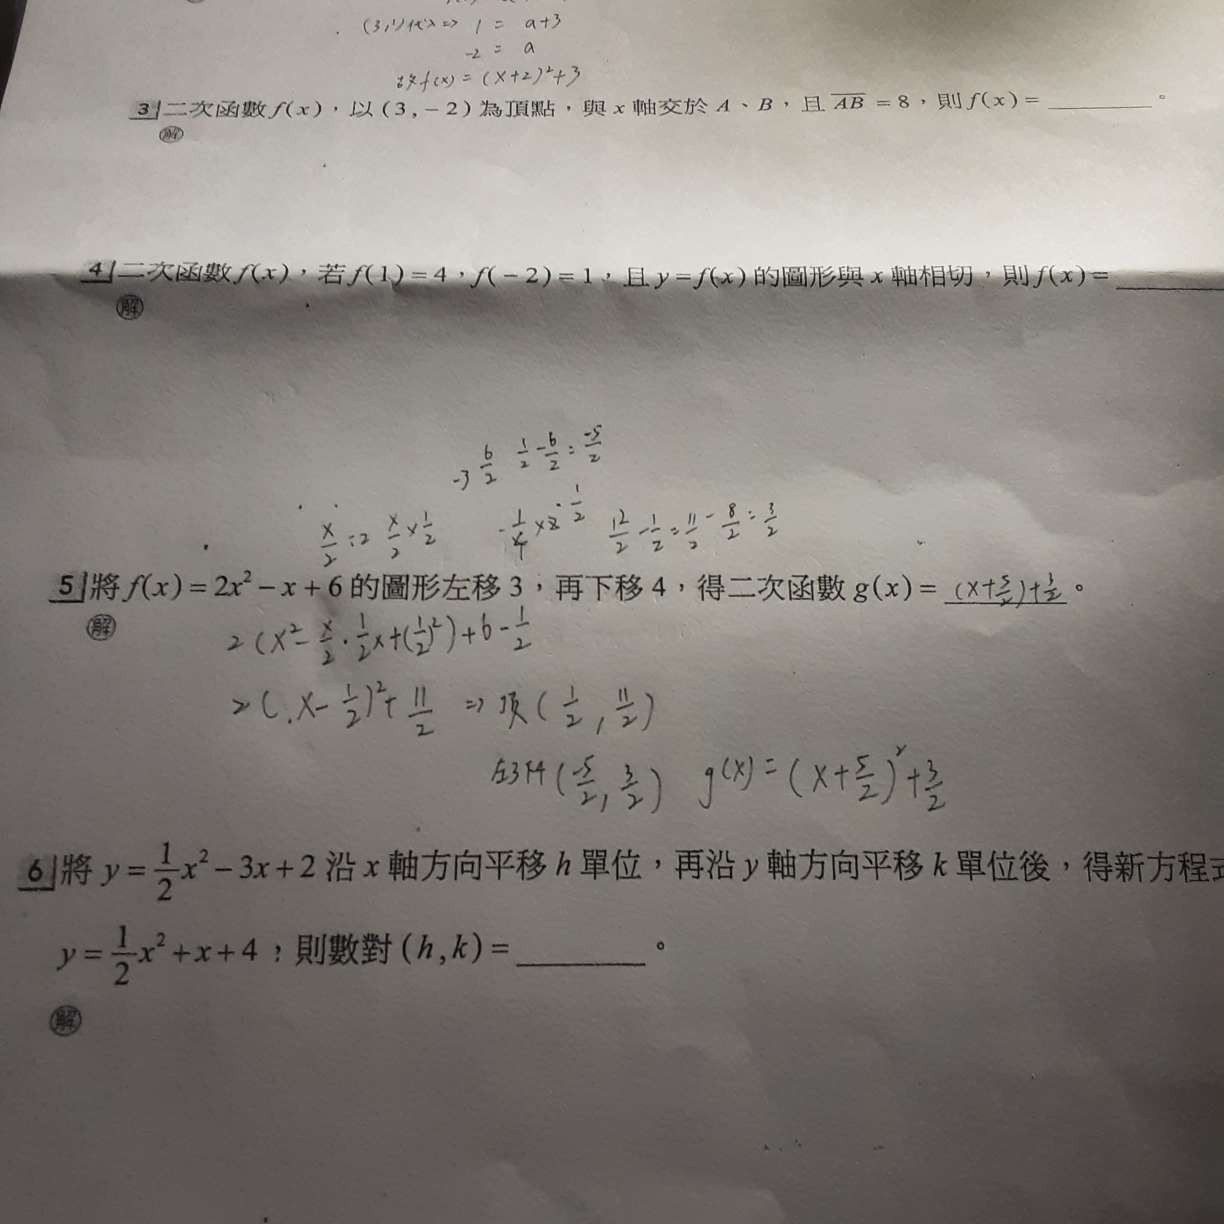 (3,1)代入⇒ 1 = a+3
-2 = a
故f(x) = (x+2)²+3
3 二次函數 f(x)，以 (3, -2) 為頂點，與 x 軸交於 A、B，且 AB = 8，則 f(x) = ________。
解
4 二次函數 f(x)，若 f(1) = 4，f(-2) = 1，且 y = f(x) 的圖形與 x 軸相切，則 f(x) = ________
解
-3 6/2 1/2 - 6/2 = -5/2
x/2 ÷2 x/2 × 1/2 -1/4 ×2 -1/2 12/2 - 1/2 = 11/2 - 8/2 = 3/2
5 將 f(x) = 2x² - x + 6 的圖形左移 3，再下移 4，得二次函數 g(x) = (x+5/2)+3/2。
解
2(x² - x/2 · 1/2x + (1/2)²) + 6 - 1/2
2(x - 1/2)² + 11/2 ⇒ 頂(1/2, 11/2)
左3下4 (-5/2, 3/2) g(x) = (x+5/2)²+3/2
6 將 y = 1/2x² - 3x + 2 沿 x 軸方向平移 h 單位，再沿 y 軸方向平移 k 單位後，得新方程式
y = 1/2x² + x + 4，則數對 (h, k) = ________。
解